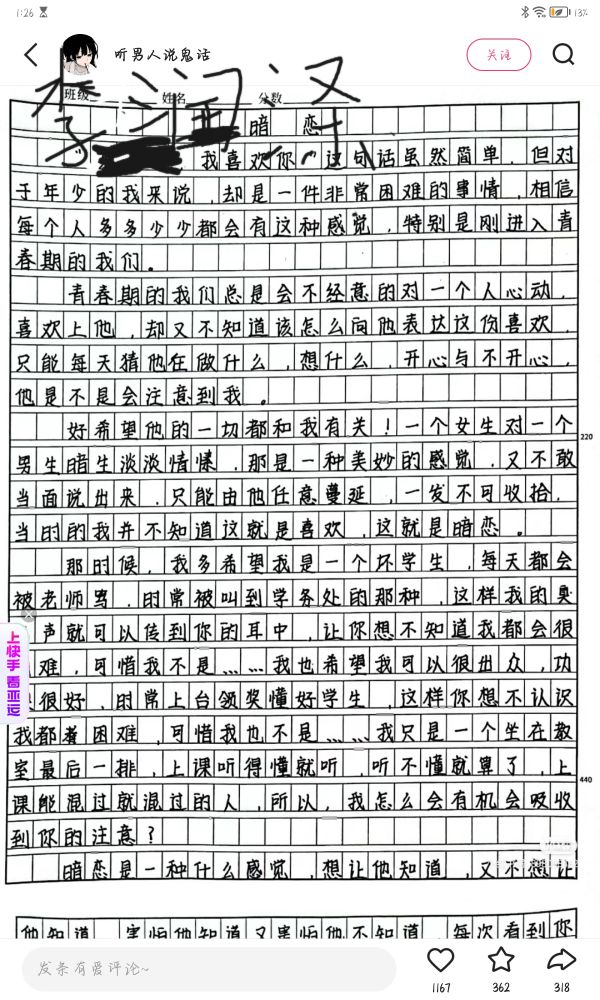 1:26
13%
听男人说鬼话
关注
李润汉
班级 姓名 分数
暗恋
“我喜欢你”这句话虽然简单，但对
于年少的我来说，却是一件非常困难的事情，相信
每个人多多少少都会有这种感觉，特别是刚进入青
春期的我们。
青春期的我们总是会不经意的对一个人心动，
喜欢上他，却又不知道该怎么向他表达这份喜欢，
只能每天猜他在做什么，想什么，开心与不开心，
他是不是会注意到我。
好希望他的一切都和我有关！一个女生对一个
220
男生暗生淡淡情愫，那是一种美妙的感觉，又不敢
当面说出来，只能由他任意蔓延，一发不可收拾，
当时的我并不知道这就是喜欢，这就是暗恋。
那时候，我多希望我是一个坏学生，每天都会
被老师骂，时常被叫到学务处的那种，这样我的臭
声就可以传到你的耳中，让你想不知道我都会很
难，可惜我不是……我也希望我可以很出众，功
很好，时常上台领奖懂好学生，这样你想不认识
我都着困难，可惜我也不是……我只是一个坐在教
室最后一排，上课听得懂就听，听不懂就算了，上
440
课能混过就混过的人，所以，我怎么会有机会吸收
到你的注意？
暗恋是一种什么感觉，想让他知道，又不想让
他知道，害怕他知道又害怕他不知道，每次看到你
上快手 看亚运
发条有爱评论~
1167
362
318